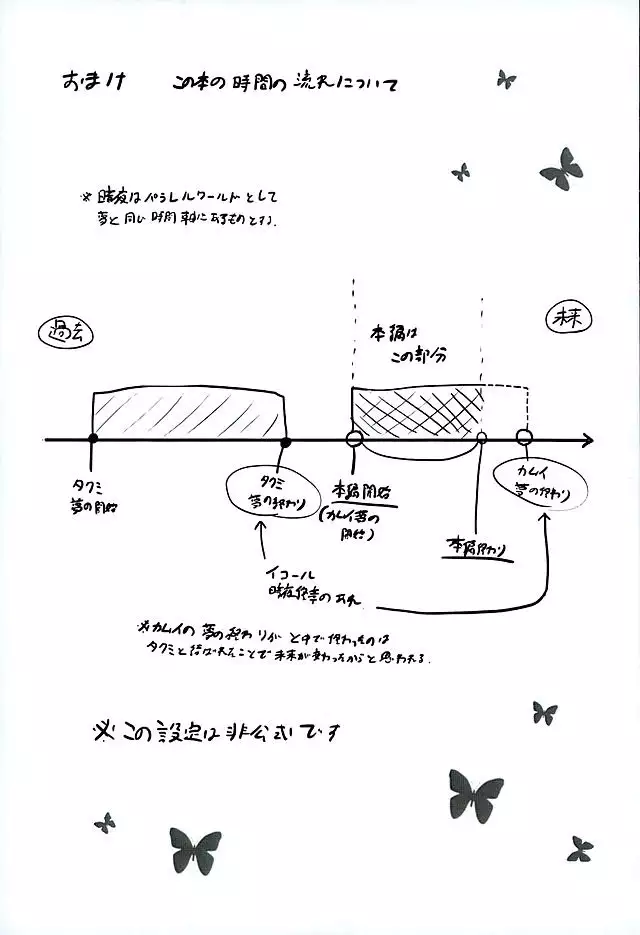 おまけ　この本の時間の流れについて
※暗夜はパラレルワールドとして
夢と同じ時間軸にあるものとする.
過去
未来
本編は
この部分
タクミ
夢の開始
タクミ
夢の終わり
本編開始
(カムイ夢の
開始)
本編終わり
カムイ
夢の終わり
イコール
暗夜終章のあれ
※カムイの夢の終わりがとちゅうで終わったのは
タクミと結ばれたことで未来が変わったからと思われる.
※この設定は非公式です